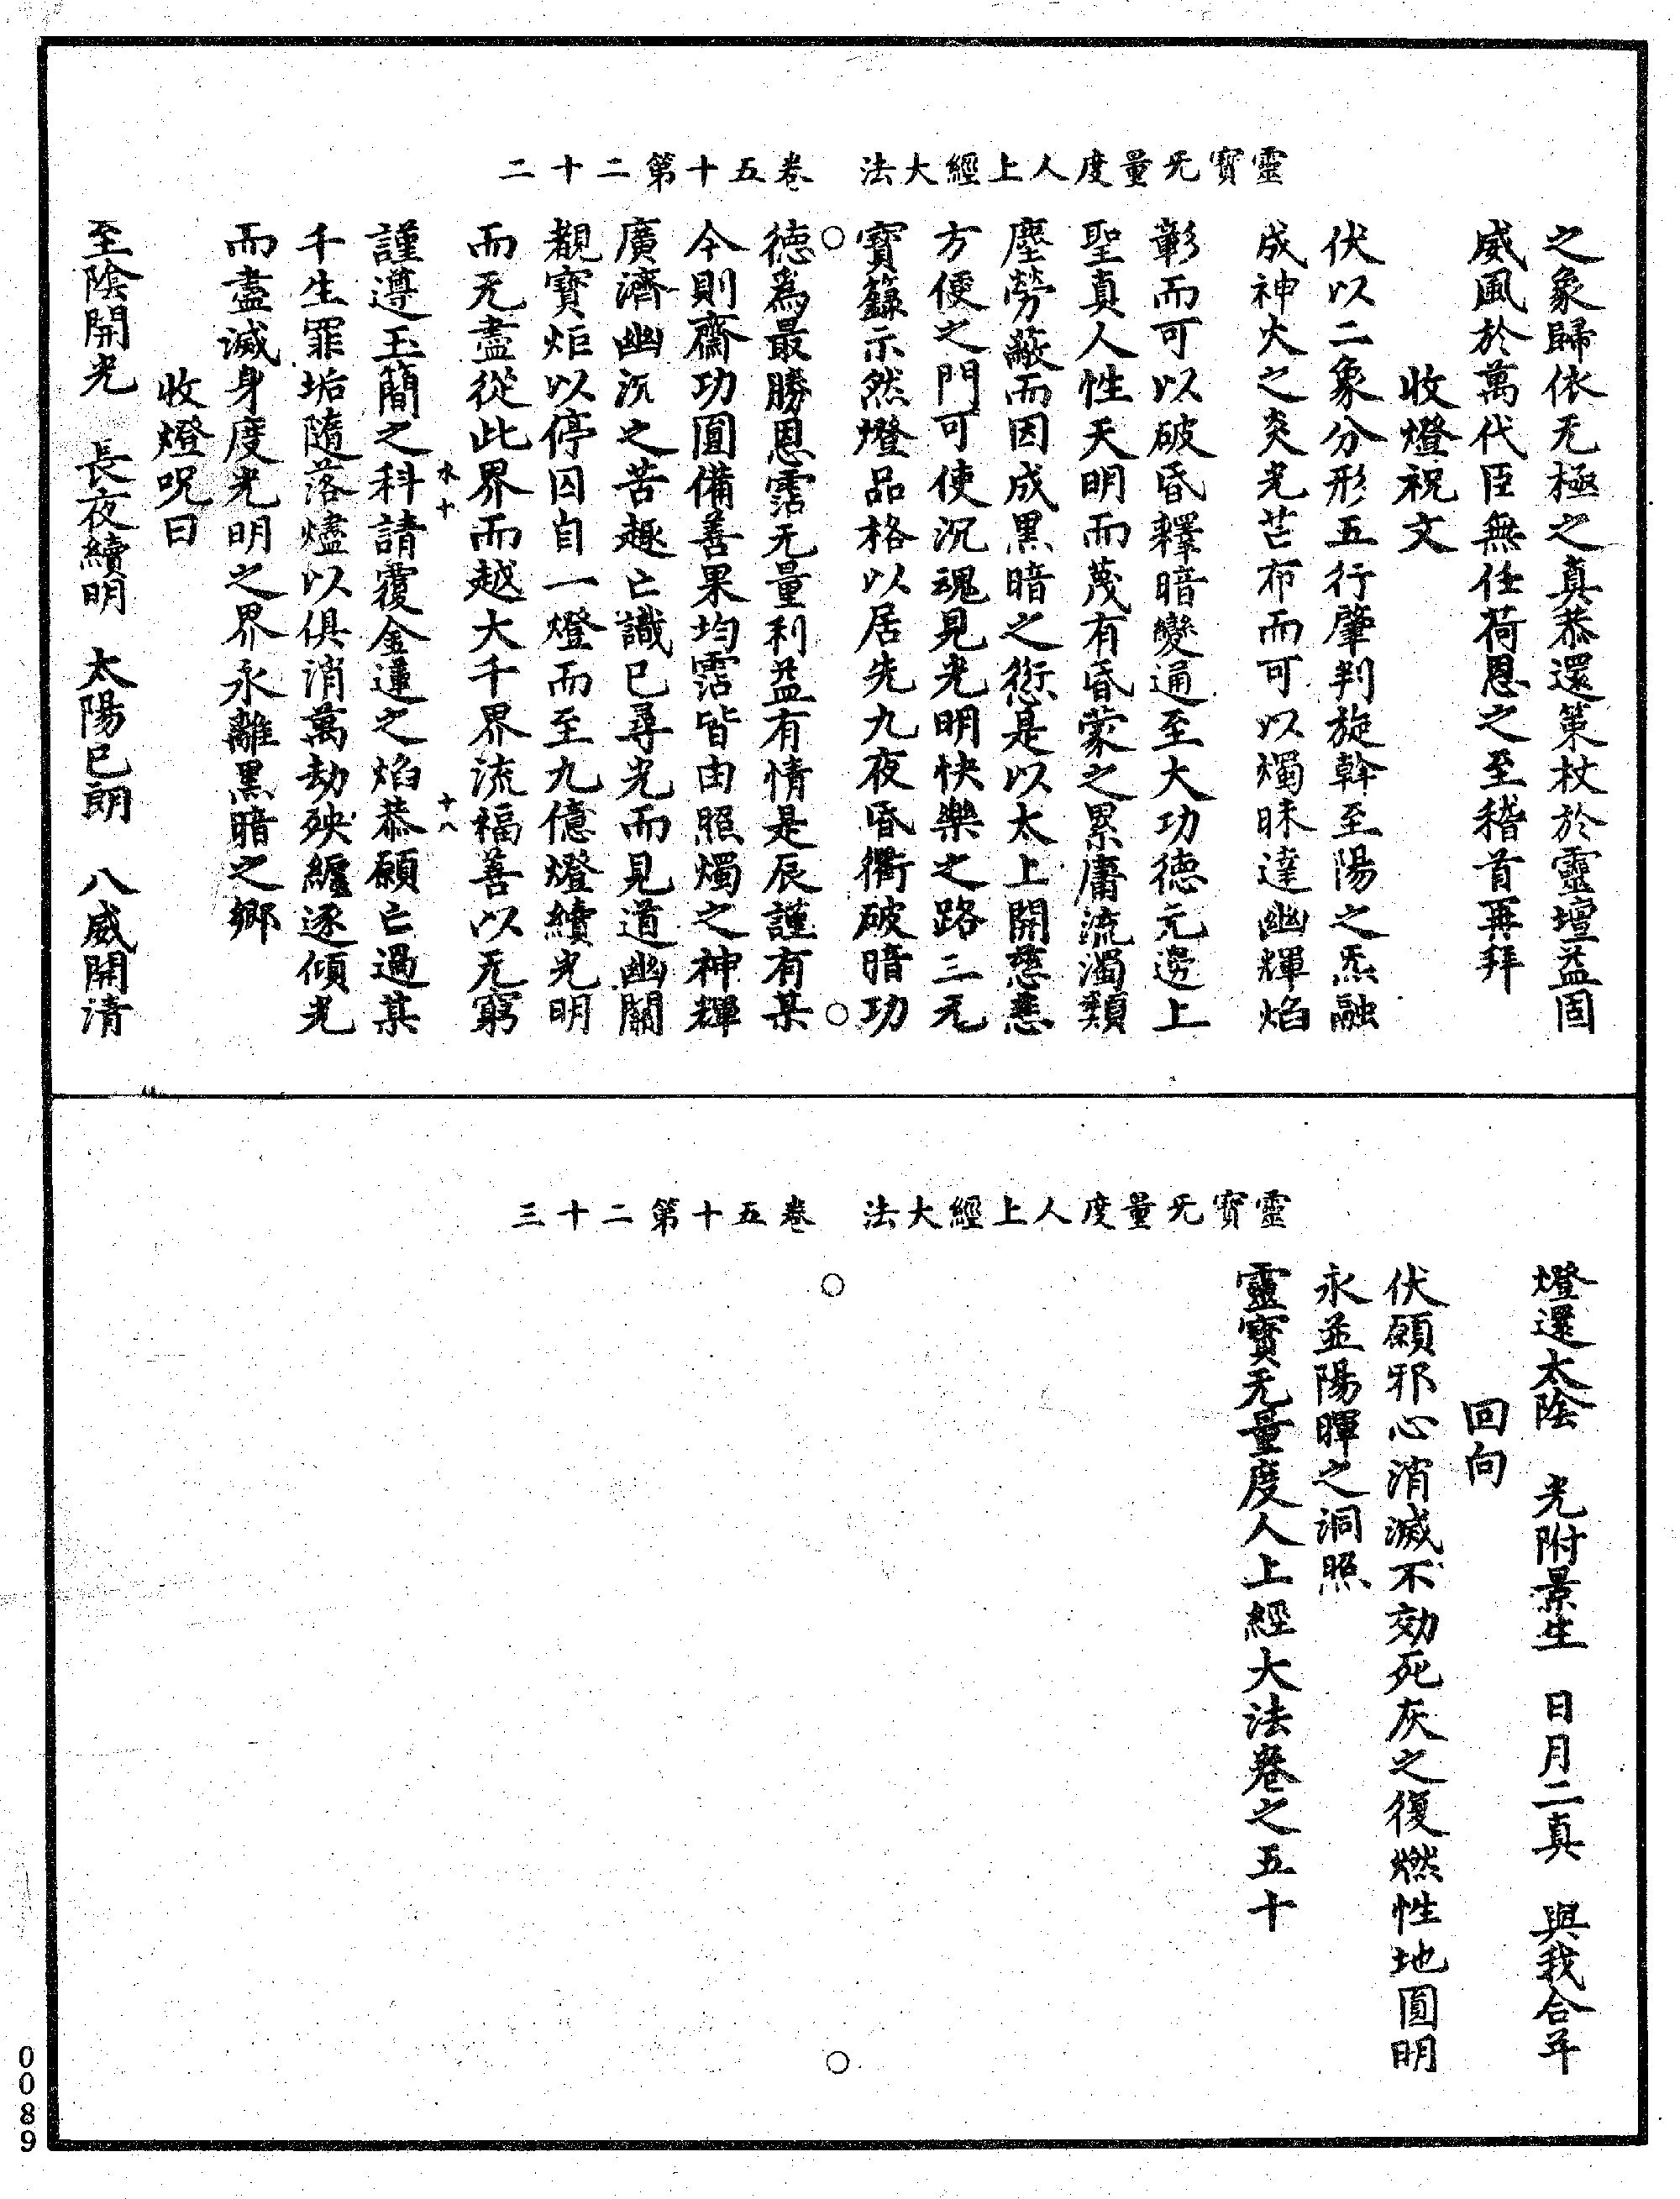 靈寶无量度人上經大法　卷五十第二十二
之象歸依无極之真恭還策杖於靈壇益固
威風於萬代臣無任荷恩之至稽首再拜
收燈祝文
伏以二象分形五行肇判旋斡至陽之炁融
成神火之炎光芒布而可以燭昧達幽輝焰
彰而可以破昏釋暗變通至大功德无邊上
聖真人性天明而茂有昏蒙之累庸流濁類
塵勞蔽而因成黑暗之愆是以太上開慈悲
方便之門可使沉魂見光明快樂之路三元
寶籙示然燈品格以居先九夜昏衢破暗功
德為最勝恩霑无量利益有情是辰謹有某
今則齋功圓備善果均霑皆由照燭之神輝
廣濟幽沉之苦趣亡識已尋光而見道幽關
覩寶炬以停囚自一燈而至九億燈續光明
而无盡從此界而越大千界流福善以无窮
水十　十八
謹遵玉簡之科請覆金蓮之焰恭願亡過某
千生罪垢隨落燼以俱消萬劫殃纏逐傾光
而盡滅身度光明之界永離黑暗之鄉
收燈呪曰
至陰開光　長夜續明　太陽已朗　八威開清
靈寶无量度人上經大法　卷五十第二十三
燈還太陰　光附景生　日月二真　與我合并
回向
伏願邪心消滅不効死灰之復燃性地圓明
永並陽暉之洞照
靈寶无量度人上經大法卷之五十
0089